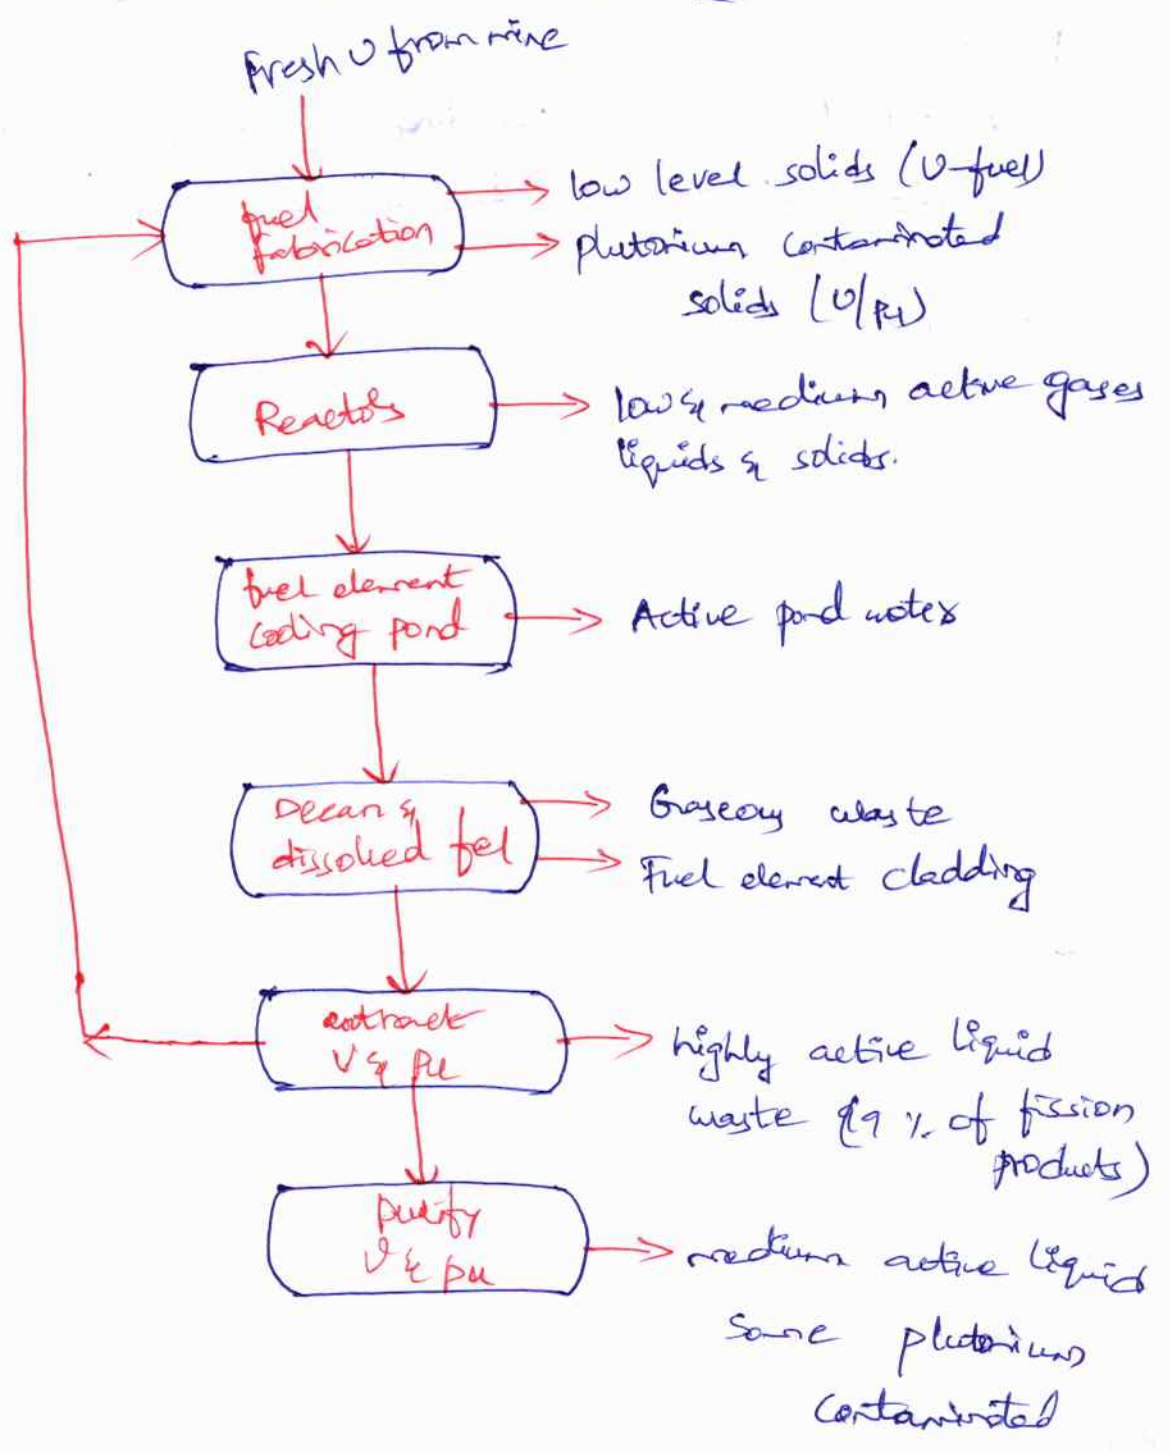 Fresh U from mine
fuel
fabrication
low level solids (U-fuel)
plutonium contaminated
solids (U/Pu)
Reactors
low & medium active gases
liquids & solids.
fuel element
cooling pond
Active pond water
Decan &
dissolved fel
Gaseous waste
Fuel element cladding
extract
U & Pu
highly active liquid
waste 99 % of fission
products)
purify
U & pu
medium active liquid
Some plutonium
contaminated